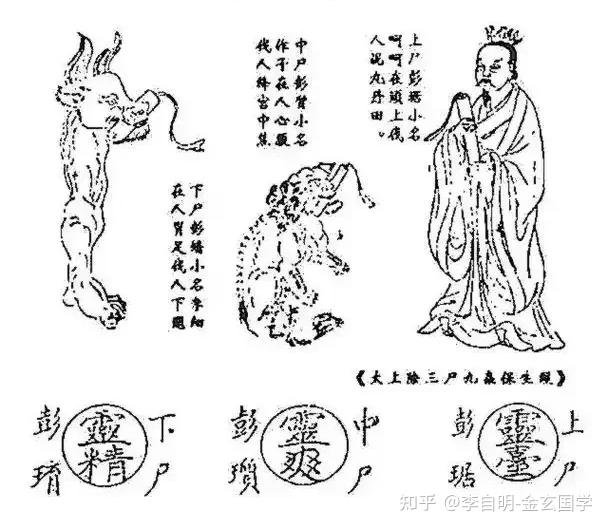 上尸彭琚小名
呵呵在頭上伐
人泥丸丹田。
中尸彭質小名
作子在人心腹
伐人絳宮中焦
下尸彭矯小名季細
在人胃足伐人下關
《太上除三尸九蟲保生經》
上尸
靈臺
彭琚
中尸
靈爽
彭瓆
下尸
靈精
彭
知乎 @李自明-金玄国学